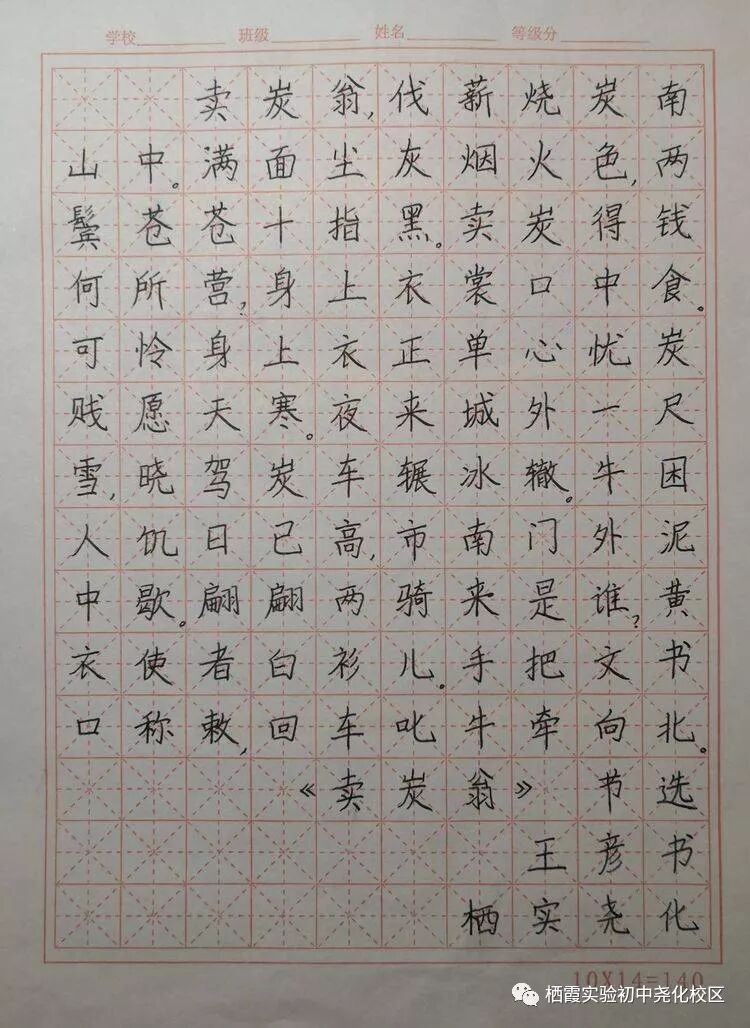 学校 班级 姓名 等级分
卖炭翁,伐薪烧炭南
山中。满面尘灰烟火色,两
鬓苍苍十指黑。卖炭得钱
何所营?身上衣裳口中食。
可怜身上衣正单心忧炭
贱愿天寒。夜来城外一尺
雪,晓驾炭车辗冰辙。牛困
人饥日已高,市南门外泥
中歇。翩翩两骑来是谁?黄
衣使者白衫儿。手把文书
口称敕,回车叱牛牵向北。
《卖炭翁》节选
王彦书
栖实尧化
10X14=140
栖霞实验初中尧化校区